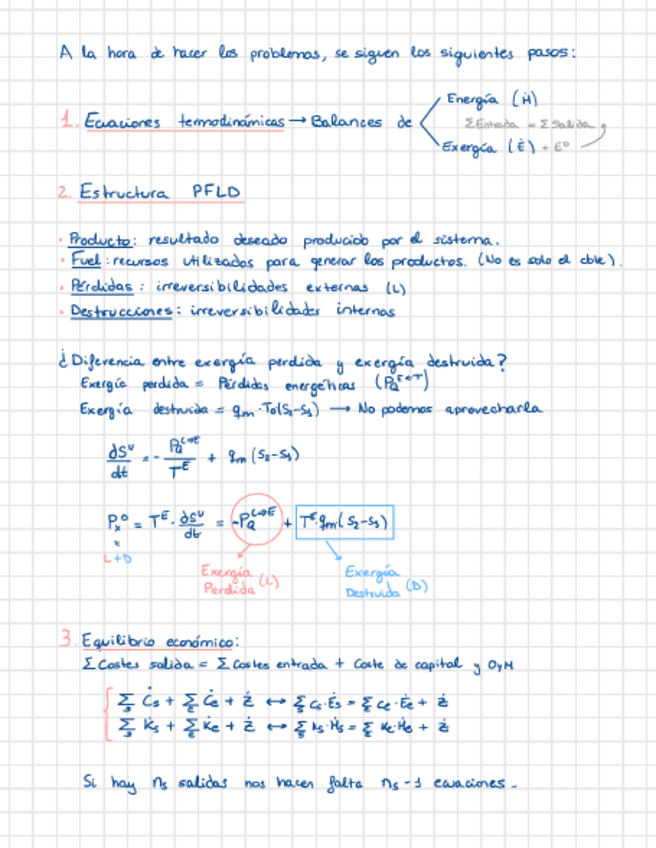 A la hora de hacer los problemas, se siguen los siguientes pasos:
1. Ecuaciones termodinámicas → Balances de
Energía (Ḣ)
ΣEntrada = ΣSalida
Exergía (Ė) + E⁰
2. Estructura PFLD
· Producto: resultado deseado producido por el sistema.
· Fuel: recursos utilizados para generar los productos. (No es solo el cble).
· Pérdidas: irreversibilidades externas (L)
· Destrucciones: irreversibilidades internas
¿Diferencia entre exergía perdida y exergía destruida?
Exergía perdida = Pérdidas energéticas
Exergía destruida = qm·T0(s2-s1) → No podemos aprovecharla
dSᵛ/dt = - PQ/Tᴱ + qm(s2-s1)
Px⁰ = Tᴱ · dSᵛ/dt = -PQ + Tᴱ·qm(s2-s1)
L+D
Exergía Perdida (L)
Exergía Destruida (D)
3. Equilibrio económico:
ΣCostes salida = ΣCostes entrada + Coste de capital y OyM
Σs Ċs + Σe Ċe + Ż ↔ Σs cs·Ės = Σe ce·Ėe + Ż
Σs K̇s + Σe K̇e + Ż ↔ Σs ks·Ḣs = Σe ke·Ḣe + Ż
Si hay ns salidas nos hacen falta ns-1 ecuaciones.